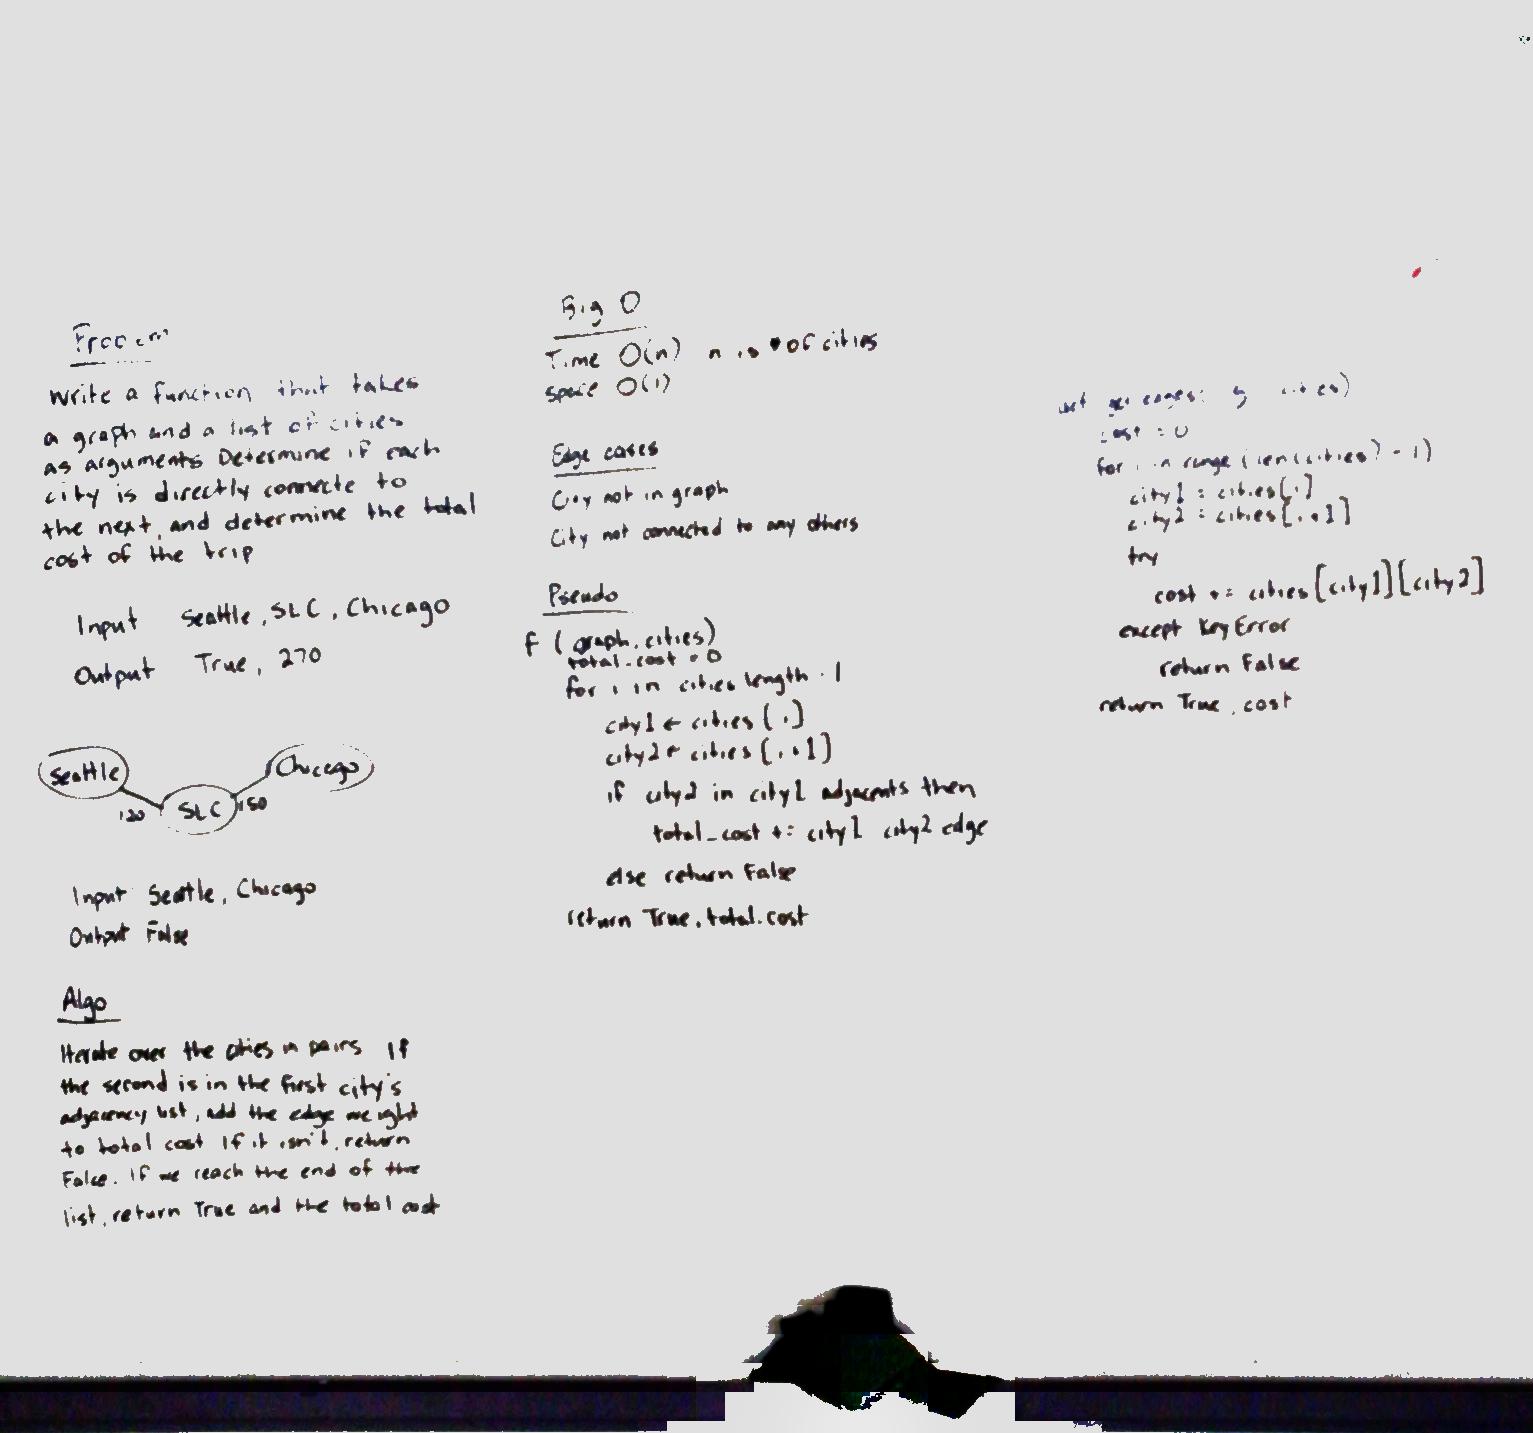 Problem
Write a function that takes
a graph and a list of cities
as arguments Determine if each
city is directly connecte to
the next, and determine the total
cost of the trip
Input Seattle, SLC, Chicago
Output True, 270
Seattle
Chicago
120 SLC 150
Input Seattle, Chicago
Output False
Algo
Iterate over the cities in pairs If
the second is in the first city's
adjacency list, add the edge weight
to total cost If it isn't, return
False. If we reach the end of the
list, return True and the total cost
Big O
Time O(n) n is # of cities
Space O(1)
Edge cases
City not in graph
City not connected to any others
Pseudo
f (graph, cities)
total_cost = 0
for i in cities length - 1
city1 ← cities [i]
city2 ← cities [i+1]
if city2 in city1 adjacents then
total_cost += city1 city2 edge
else return False
return True, total_cost
def get edges( g cities)
cost = 0
for i in range (len(cities) - 1)
city1 = cities[i]
city2 = cities[i+1]
try
cost += cities[city1][city2]
except KeyError
return False
return True, cost